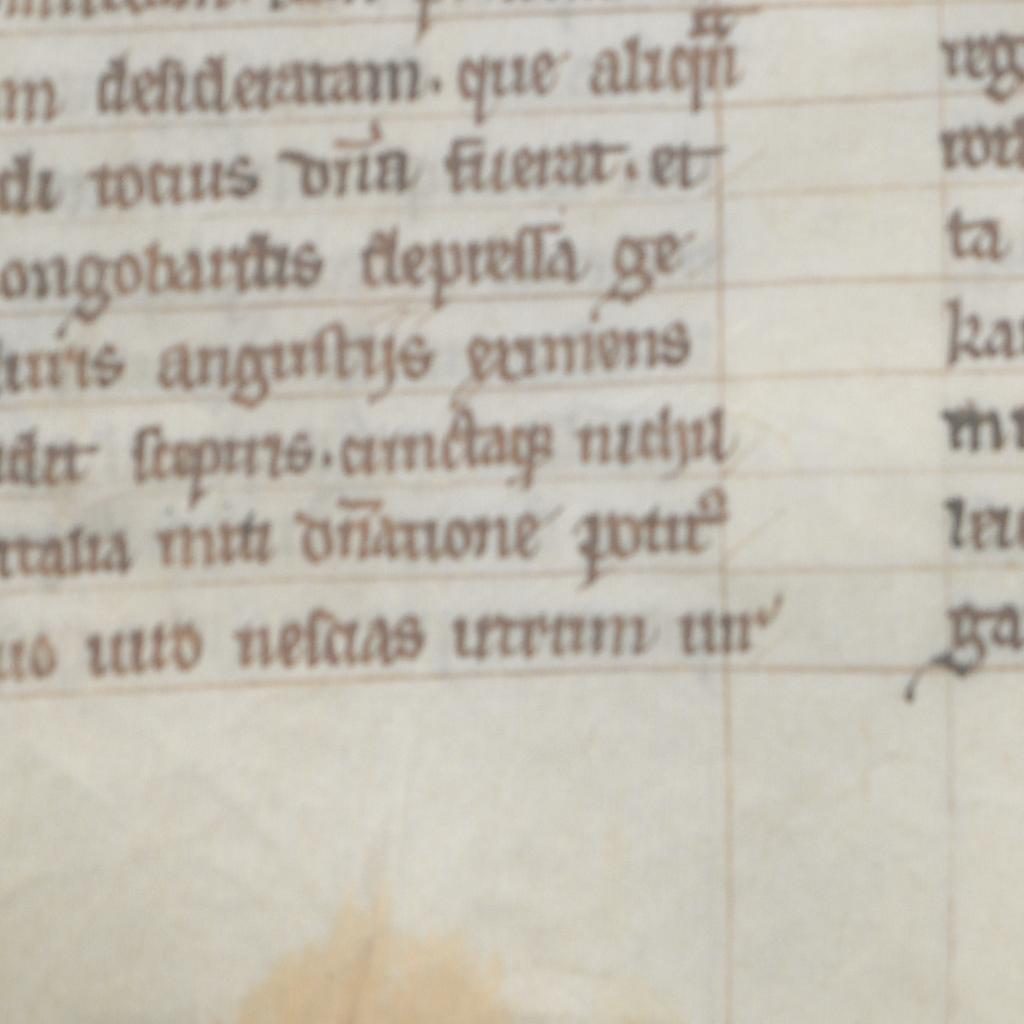 desideratam. que aliqñ
di tocius dñia fuerat. et
ongobardis depressa ge
uiris angustijs eximens
sceptris. cunctaqꝫ nichil
rtalia miti dñatione potitꝰ
uo uiuo nescias utrum uir
reg
ta
kar
ga